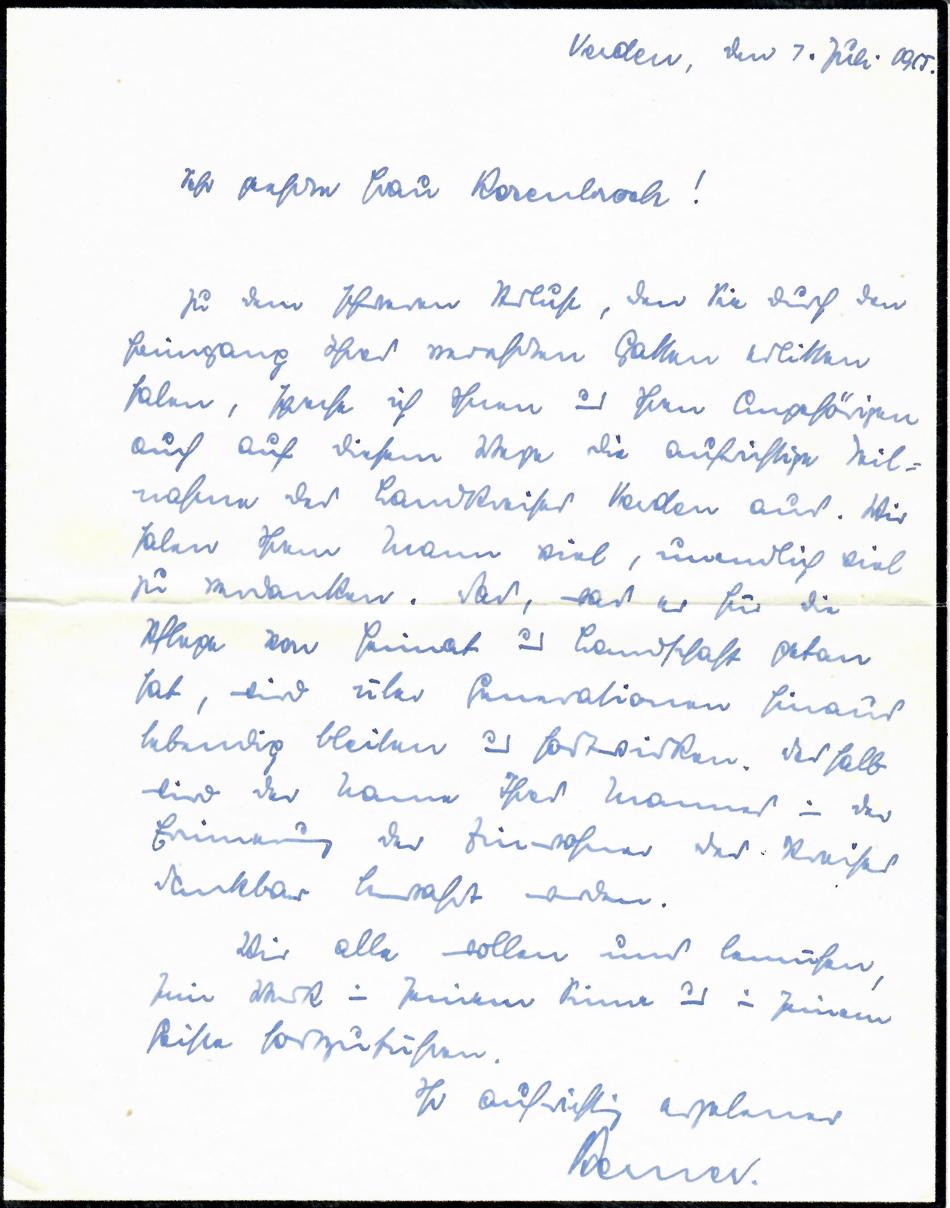 Verden, den 7. Juli 1955.
Sehr geehrte Frau Rosenbrock!
Zu dem schweren Verlust, den Sie durch den
Heimgang Ihres verehrten Gatten erlitten
haben, spreche ich Ihnen u. Ihren Angehörigen
auch auf diesem Wege die aufrichtige Teil=
nahme des Landkreises Verden aus. Wir
haben Ihrem Mann viel, unendlich viel
zu verdanken. Das, was er für die
Pflege von Heimat u. Landschaft getan
hat, wird über Generationen hinaus
lebendig bleiben u. fortwirken. Deshalb
wird der Name Ihres Mannes in der
Erinnerung der Einwohner des Kreises
dankbar bewahrt werden.
Wir alle wollen uns bemühen,
sein Werk in seinem Sinne u. in seinem
Geiste fortzuführen.
Ihr aufrichtig ergebener